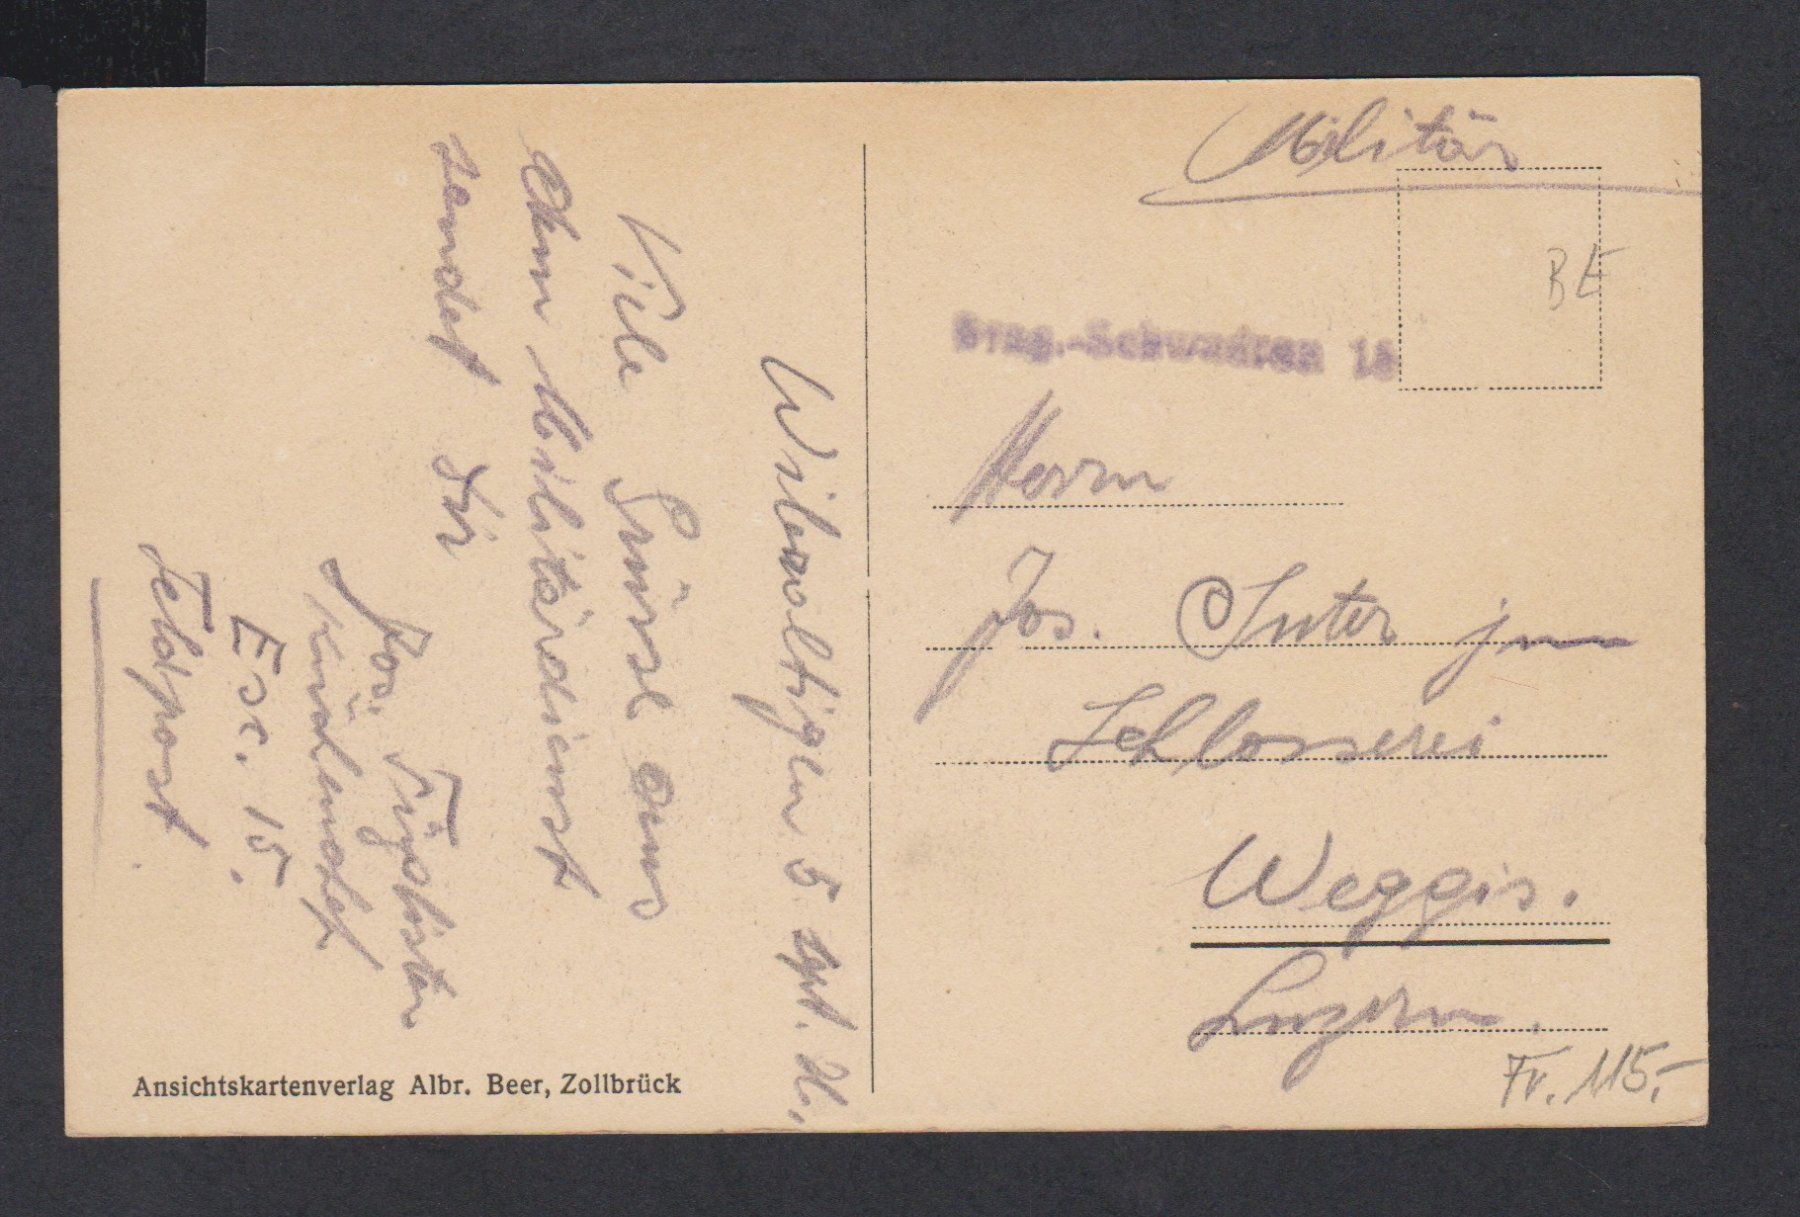 Militär
BE
Drag.-Schwadron 15
Herrn
Jos. Suter jun
Schlosserei
Weggis.
Luzern.
Fr. 115.-
Wileroltigen 5 spt.
Viele Grüsse aus
dem Militärdienst
sendet Dir
Jos.
Esc. 15.
Feldpost
Ansichtskartenverlag Albr. Beer, Zollbrück